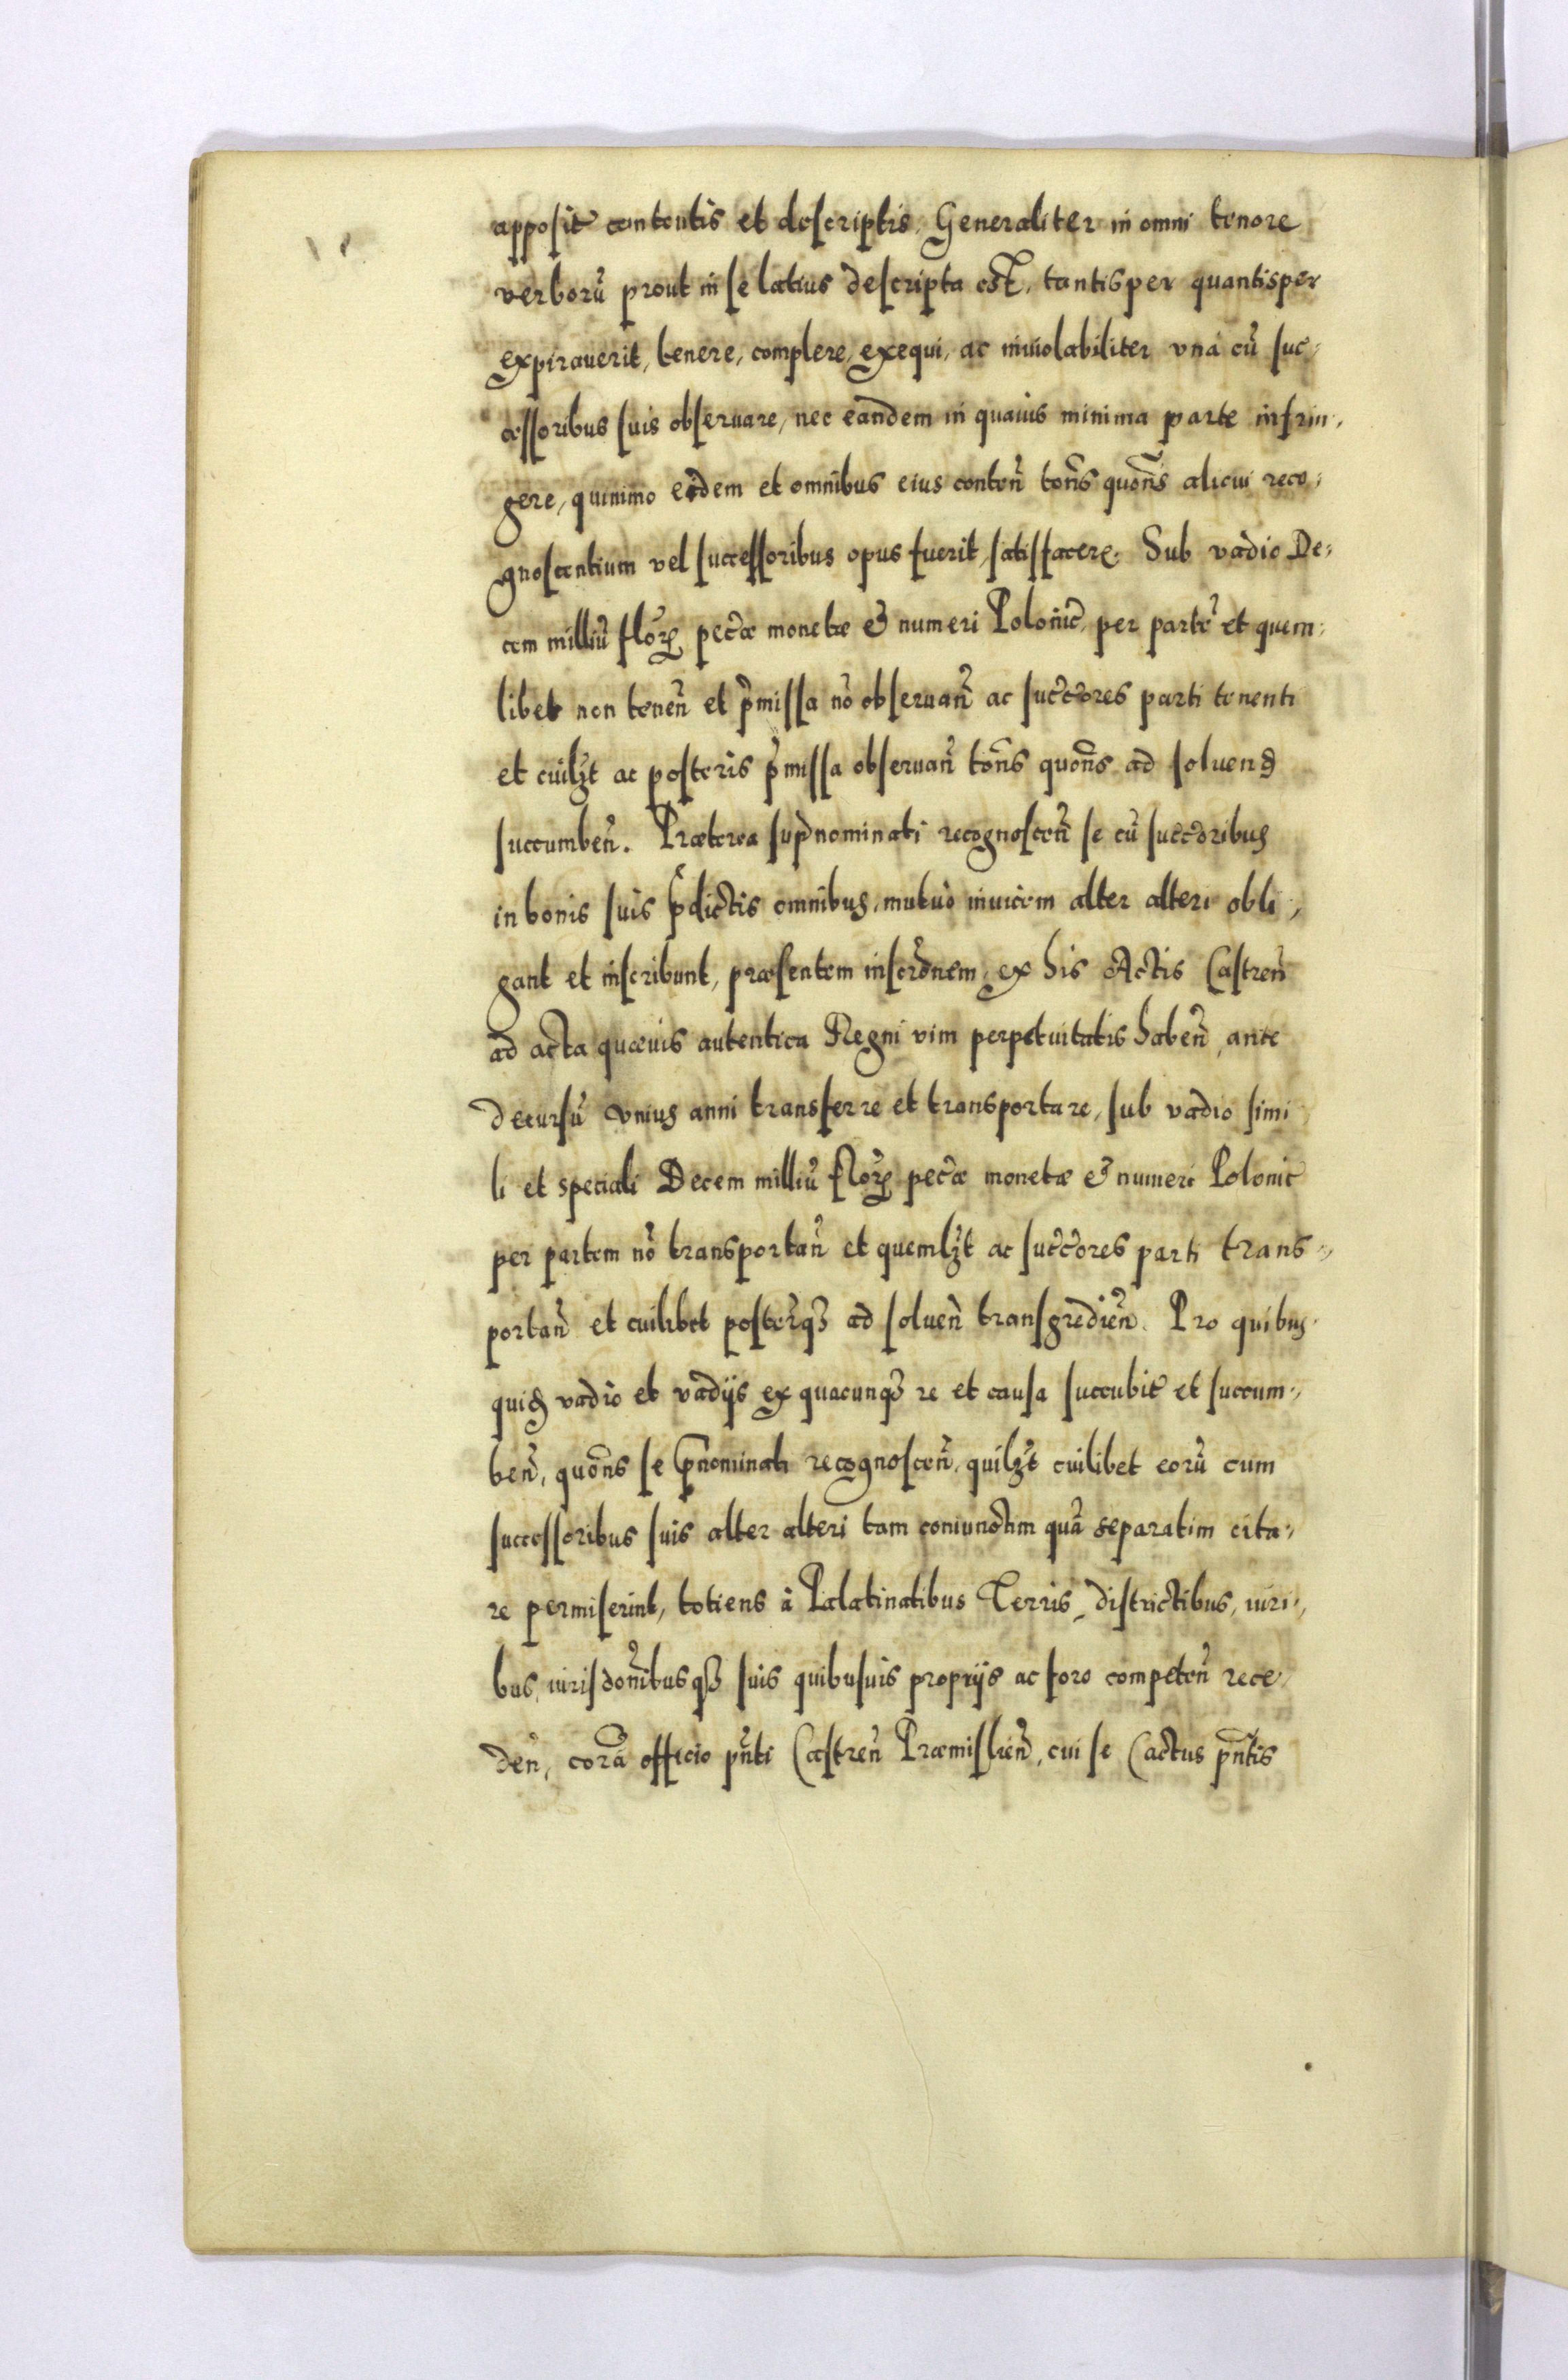 apposit̃ contentis et descriptis, Generaliter in omni tenore
verborũ prout in se latius descripta est, tantisper quantisper
expirauerit, tenere, complere, exequi, ac inuiolabiliter vná cũ suc,
cessoribus suis obseruare, nec eandem in quauis minima parte infrin,
gere, quinimo eidem et omnibus eius conteñ tõns quõns alicui reco,
gnoscentium vel successoribus opus fuerit, satisfacere. Sub vadio De,
cem milliũ flor̃ pec̃æ monetæ & numeri Polonic̃, per partẽ et quem,
libet non teneñ et p̃missa nõ obseruañ ac succ̃ores parti tenenti
et cuilꝫt ac posteris p̃missa obseruañ tõns quõns ad soluend
succumbeñ. Præterea sup̃nominati recognosceñ se cũ succ̃oribus
in bonis suis p̃dictis omnibus, mutuò inuicem alter alteri obli,
gant et inscribunt, præsentem inscr̃onem, ex his Actis Castreñ
ad acta quæuis autentica Regni vim perpetuitatis habeñ, ante
decursũ vnius anni transferre et transportare, sub vadio simi
li et speciali Decem milliũ flor̃ pec̃æ monetæ & numeri Polonic̃
per partem nõ transportañ et quemlꝫt ac succ̃ores parti trans,
portañ et cuilibet poster̃qꝫ ad solueñ transgredieñ. Pro quibus
quid vadio et vadijs ex quacunqꝫ re et causa succubit̃ et succum,
beñ, quõns se p̃nominati recognosceñ, quilꝫt cuilibet eorũ cum
successoribus suis alter alteri tam coniunctim quã separatim cita,
re permiserint, totiens à Palatinatibus Terris, districtibus, iuri,
bus, iurisdõnibusqꝫ suis quibusuis proprijs ac foro competeñ rece,
deñ, corã officio pñti Castreñ Præmislieñ, cui se Cactus pñtis